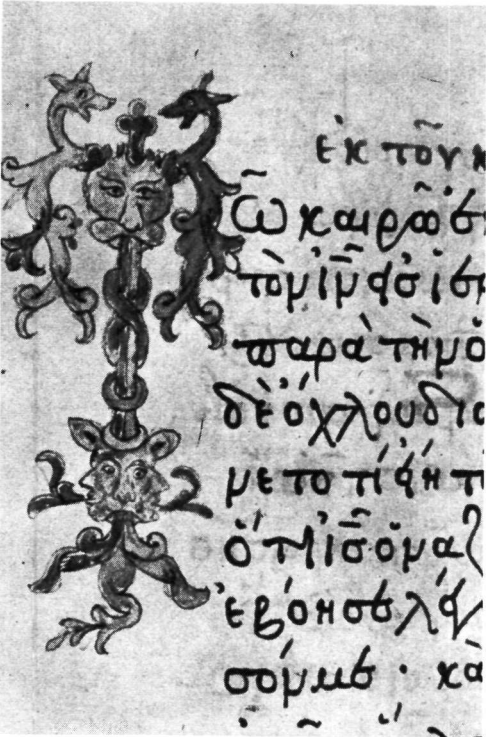 ἐκ τοῦ κ
ῶ καιρῶ ἐ
τὸν ἰ̅ν̅ εἰσ ἰε
παρὰ τὴν ὁ
δὲ ὄχλου δια
νετο τί εἴη τ
ὅτι ἰ̅σ̅ ὁ ναζ
ἐβόησε λέγ
σόν με · κὰ